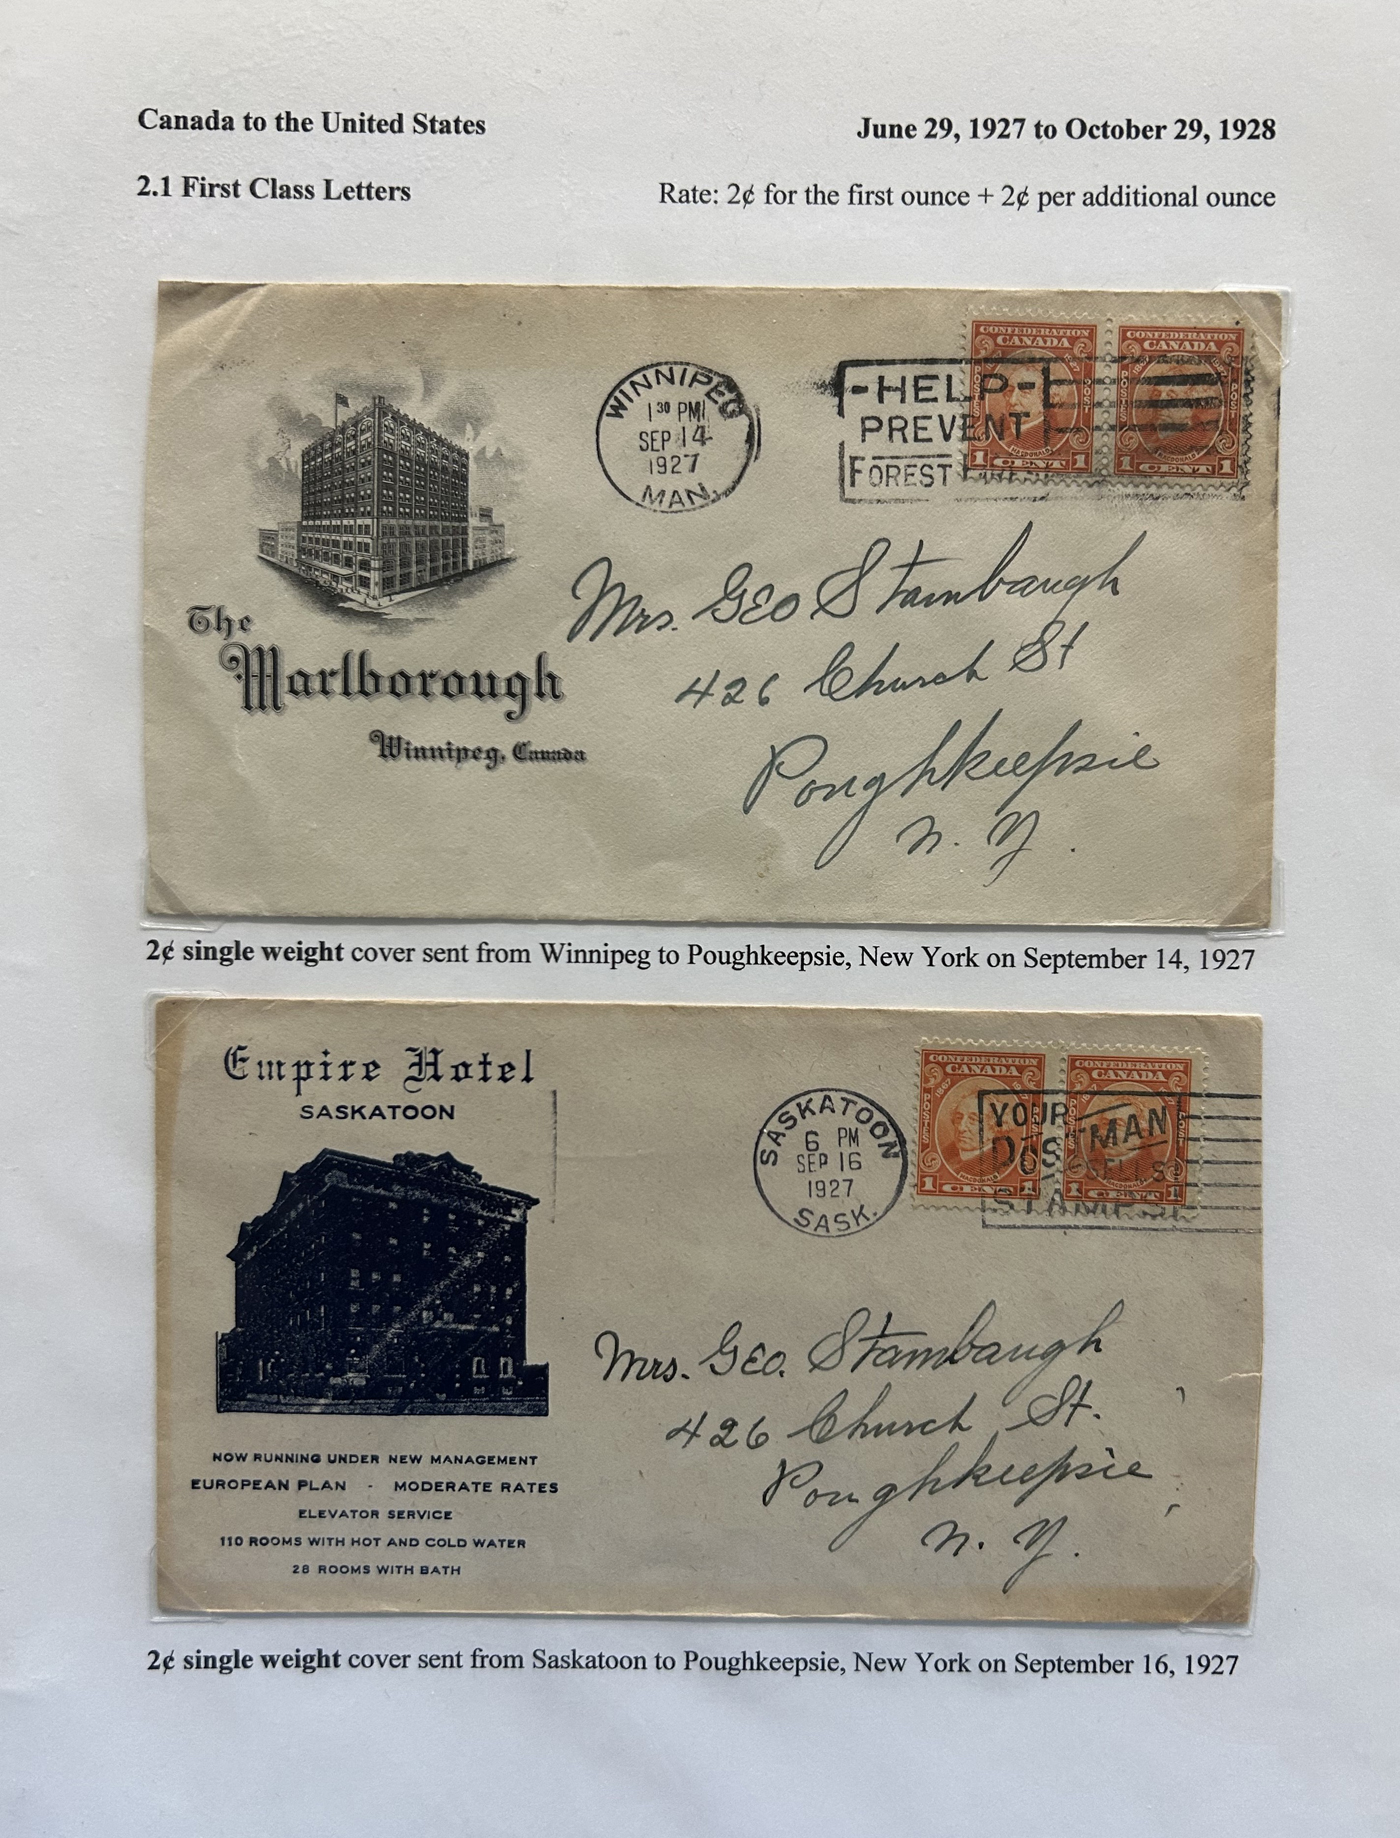 Canada to the United States
June 29, 1927 to October 29, 1928
2.1 First Class Letters
Rate: 2¢ for the first ounce + 2¢ per additional ounce
WINNIPEG
1 30 PM
SEP 14
1927
MAN.
-HELP-
PREVENT
FOREST
CONFEDERATION
CANADA
POSTES
POST
MACDONALD
1 CENT 1
CONFEDERATION
CANADA
POSTES
POST
MACDONALD
1 CENT 1
The
Marlborough
Winnipeg, Canada
Mrs. GEO Stambaugh
426 Church St
Poughkeepsie
N. Y.
2¢ single weight cover sent from Winnipeg to Poughkeepsie, New York on September 14, 1927
Empire Hotel
SASKATOON
SASKATOON
6 PM
SEP 16
1927
SASK.
CONFEDERATION
CANADA
1867
POSTES
MACDONALD
1 CENT 1
CONFEDERATION
CANADA
POSTES
POST
MACDONALD
1 CENT 1
YOUR
POSTMAN
SELLS
STAMPS
NOW RUNNING UNDER NEW MANAGEMENT
EUROPEAN PLAN - MODERATE RATES
ELEVATOR SERVICE
110 ROOMS WITH HOT AND COLD WATER
28 ROOMS WITH BATH
Mrs. GEO. Stambaugh
426 Church St.
Poughkeepsie
N. Y.
2¢ single weight cover sent from Saskatoon to Poughkeepsie, New York on September 16, 1927